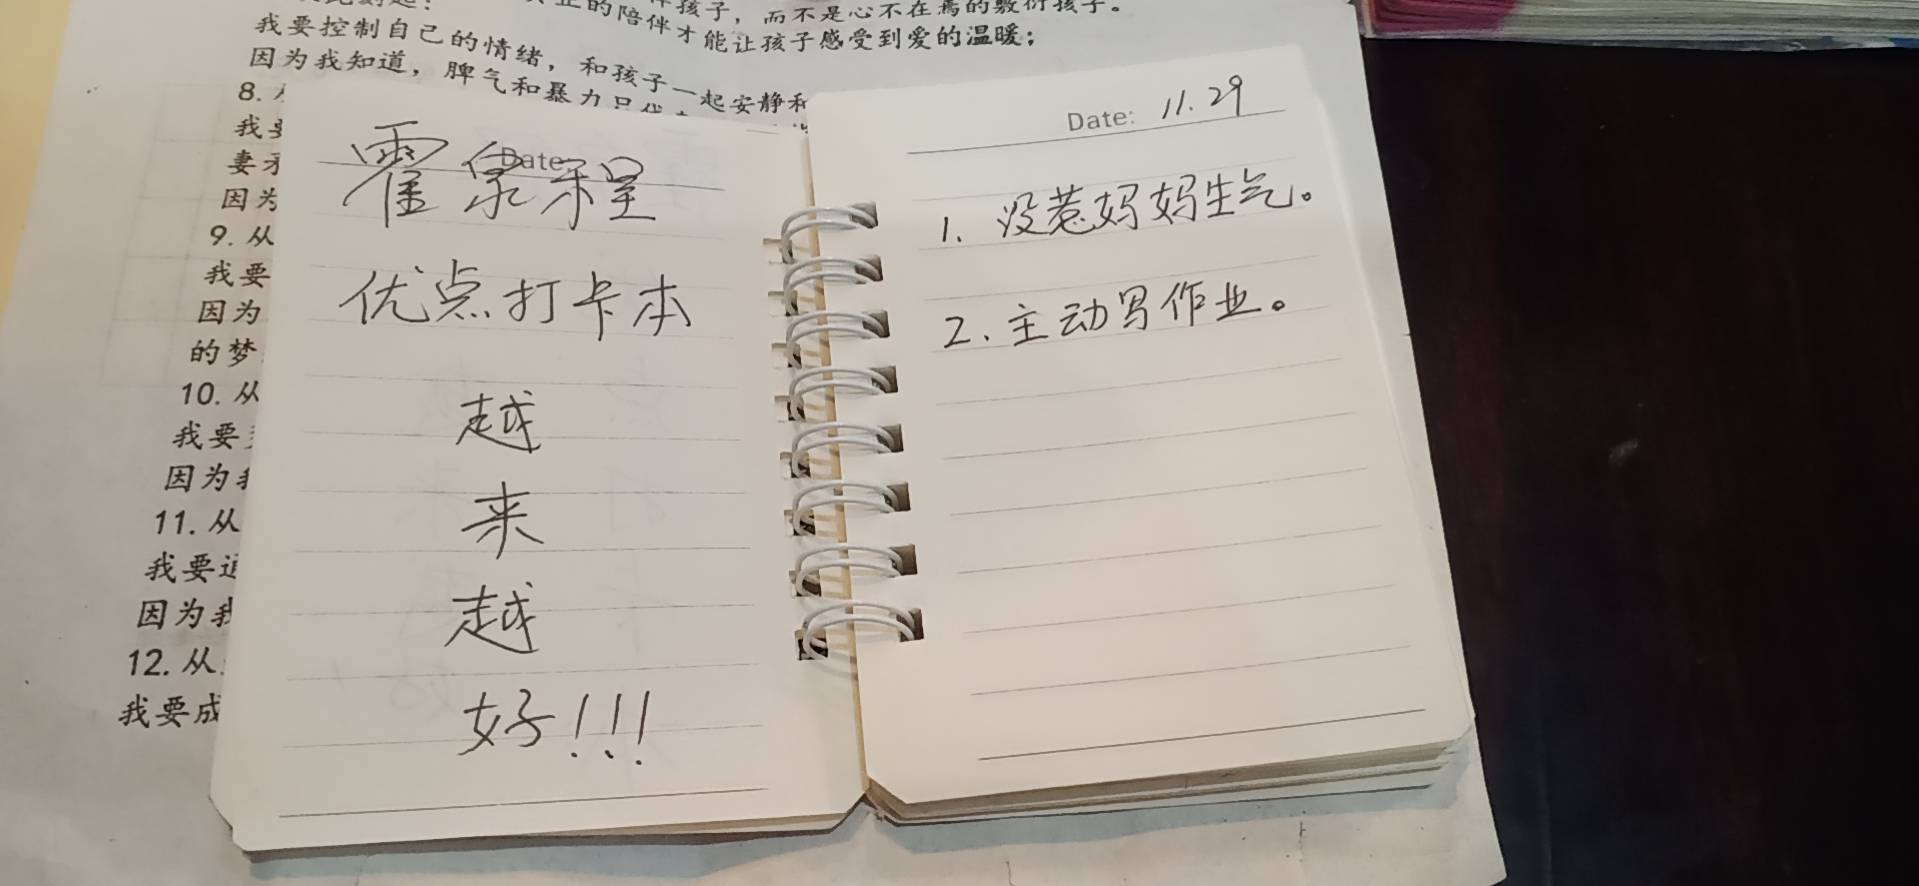 正的陪伴才能让孩子感受到爱的温暖；
伴孩子，而不是心不在焉的敷衍孩子。
我要控制自己的情绪，和孩子一起安静和
因为我知道，脾气和暴力只代
8. 从
我要
妻子
因为
9. 从
我要
因为
的梦
10. 从
我要
因为我
11. 从
我要
因为我
12. 从
我要成
Date:
霍泉程
优点打卡本
越
来
越
好!!!
Date: 11.29
1. 没惹妈妈生气。
2. 主动写作业。